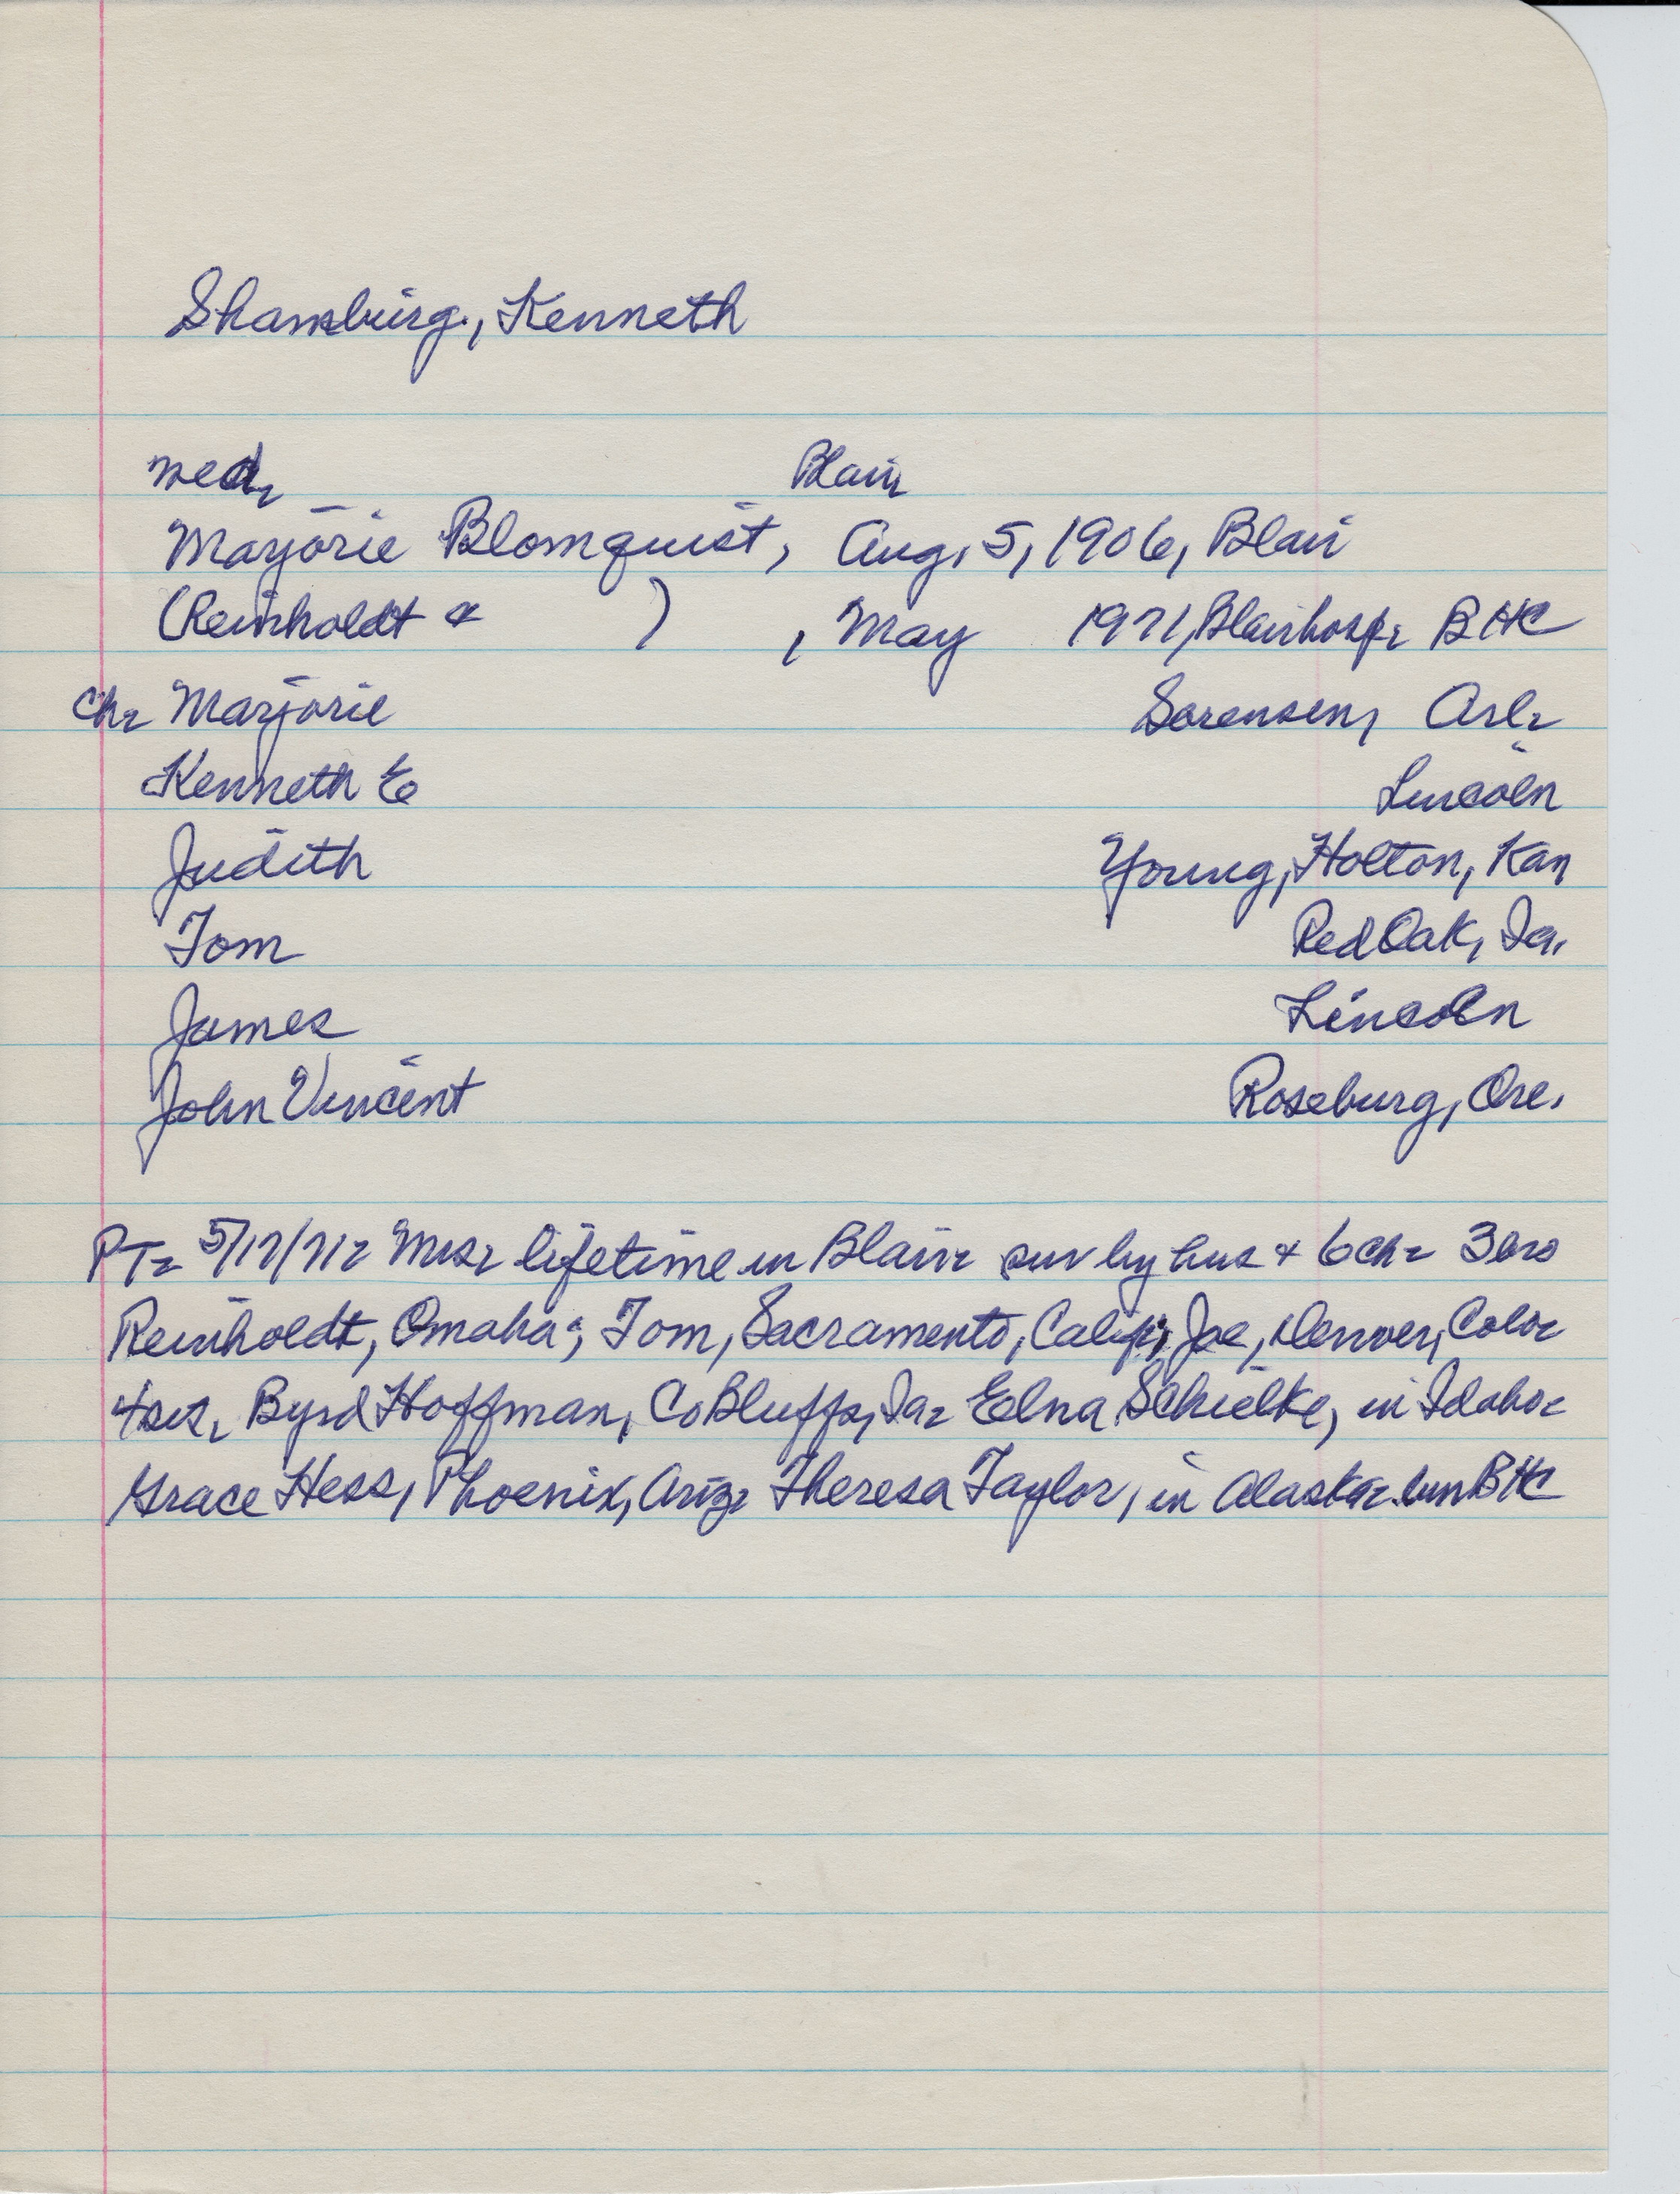 Shamburg, Kenneth
wed. Blair
Marjorie Blomquist, Aug. 5, 1906, Blair
(Reinholdt & ) , May 1971, Blair hosp. BHC
ch. Marjorie Sorensen, Arl.
Kenneth E Lincoln
Judith Young, Holton, Kan
Tom Red Oak, Ia.
James Lincoln
John Vincent Roseburg, Ore.
PT. 5/17/71. Mrs. lifetime in Blair. surv by hus & 6 ch. 3 bro
Reinholdt, Omaha; Tom, Sacramento, Calif; Joe, Denver, Colo.
4 sis. Byrd Hoffman, Co Bluffs, Ia. Elna Schielke, in Idaho.
Grace Hess, Phoenix, Ariz. Theresa Taylor, in Alaska. bur BHC